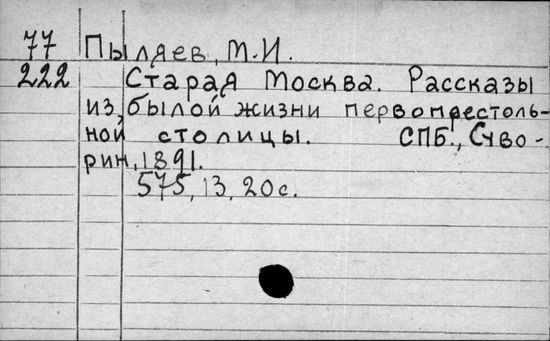 77 Пыляев, М.И.
222 Старая Москва. Рассказы
из былой жизни первопрестоль-
ной столицы. СПБ., Суво-
рин, 1891.
575, 13, 20 с.